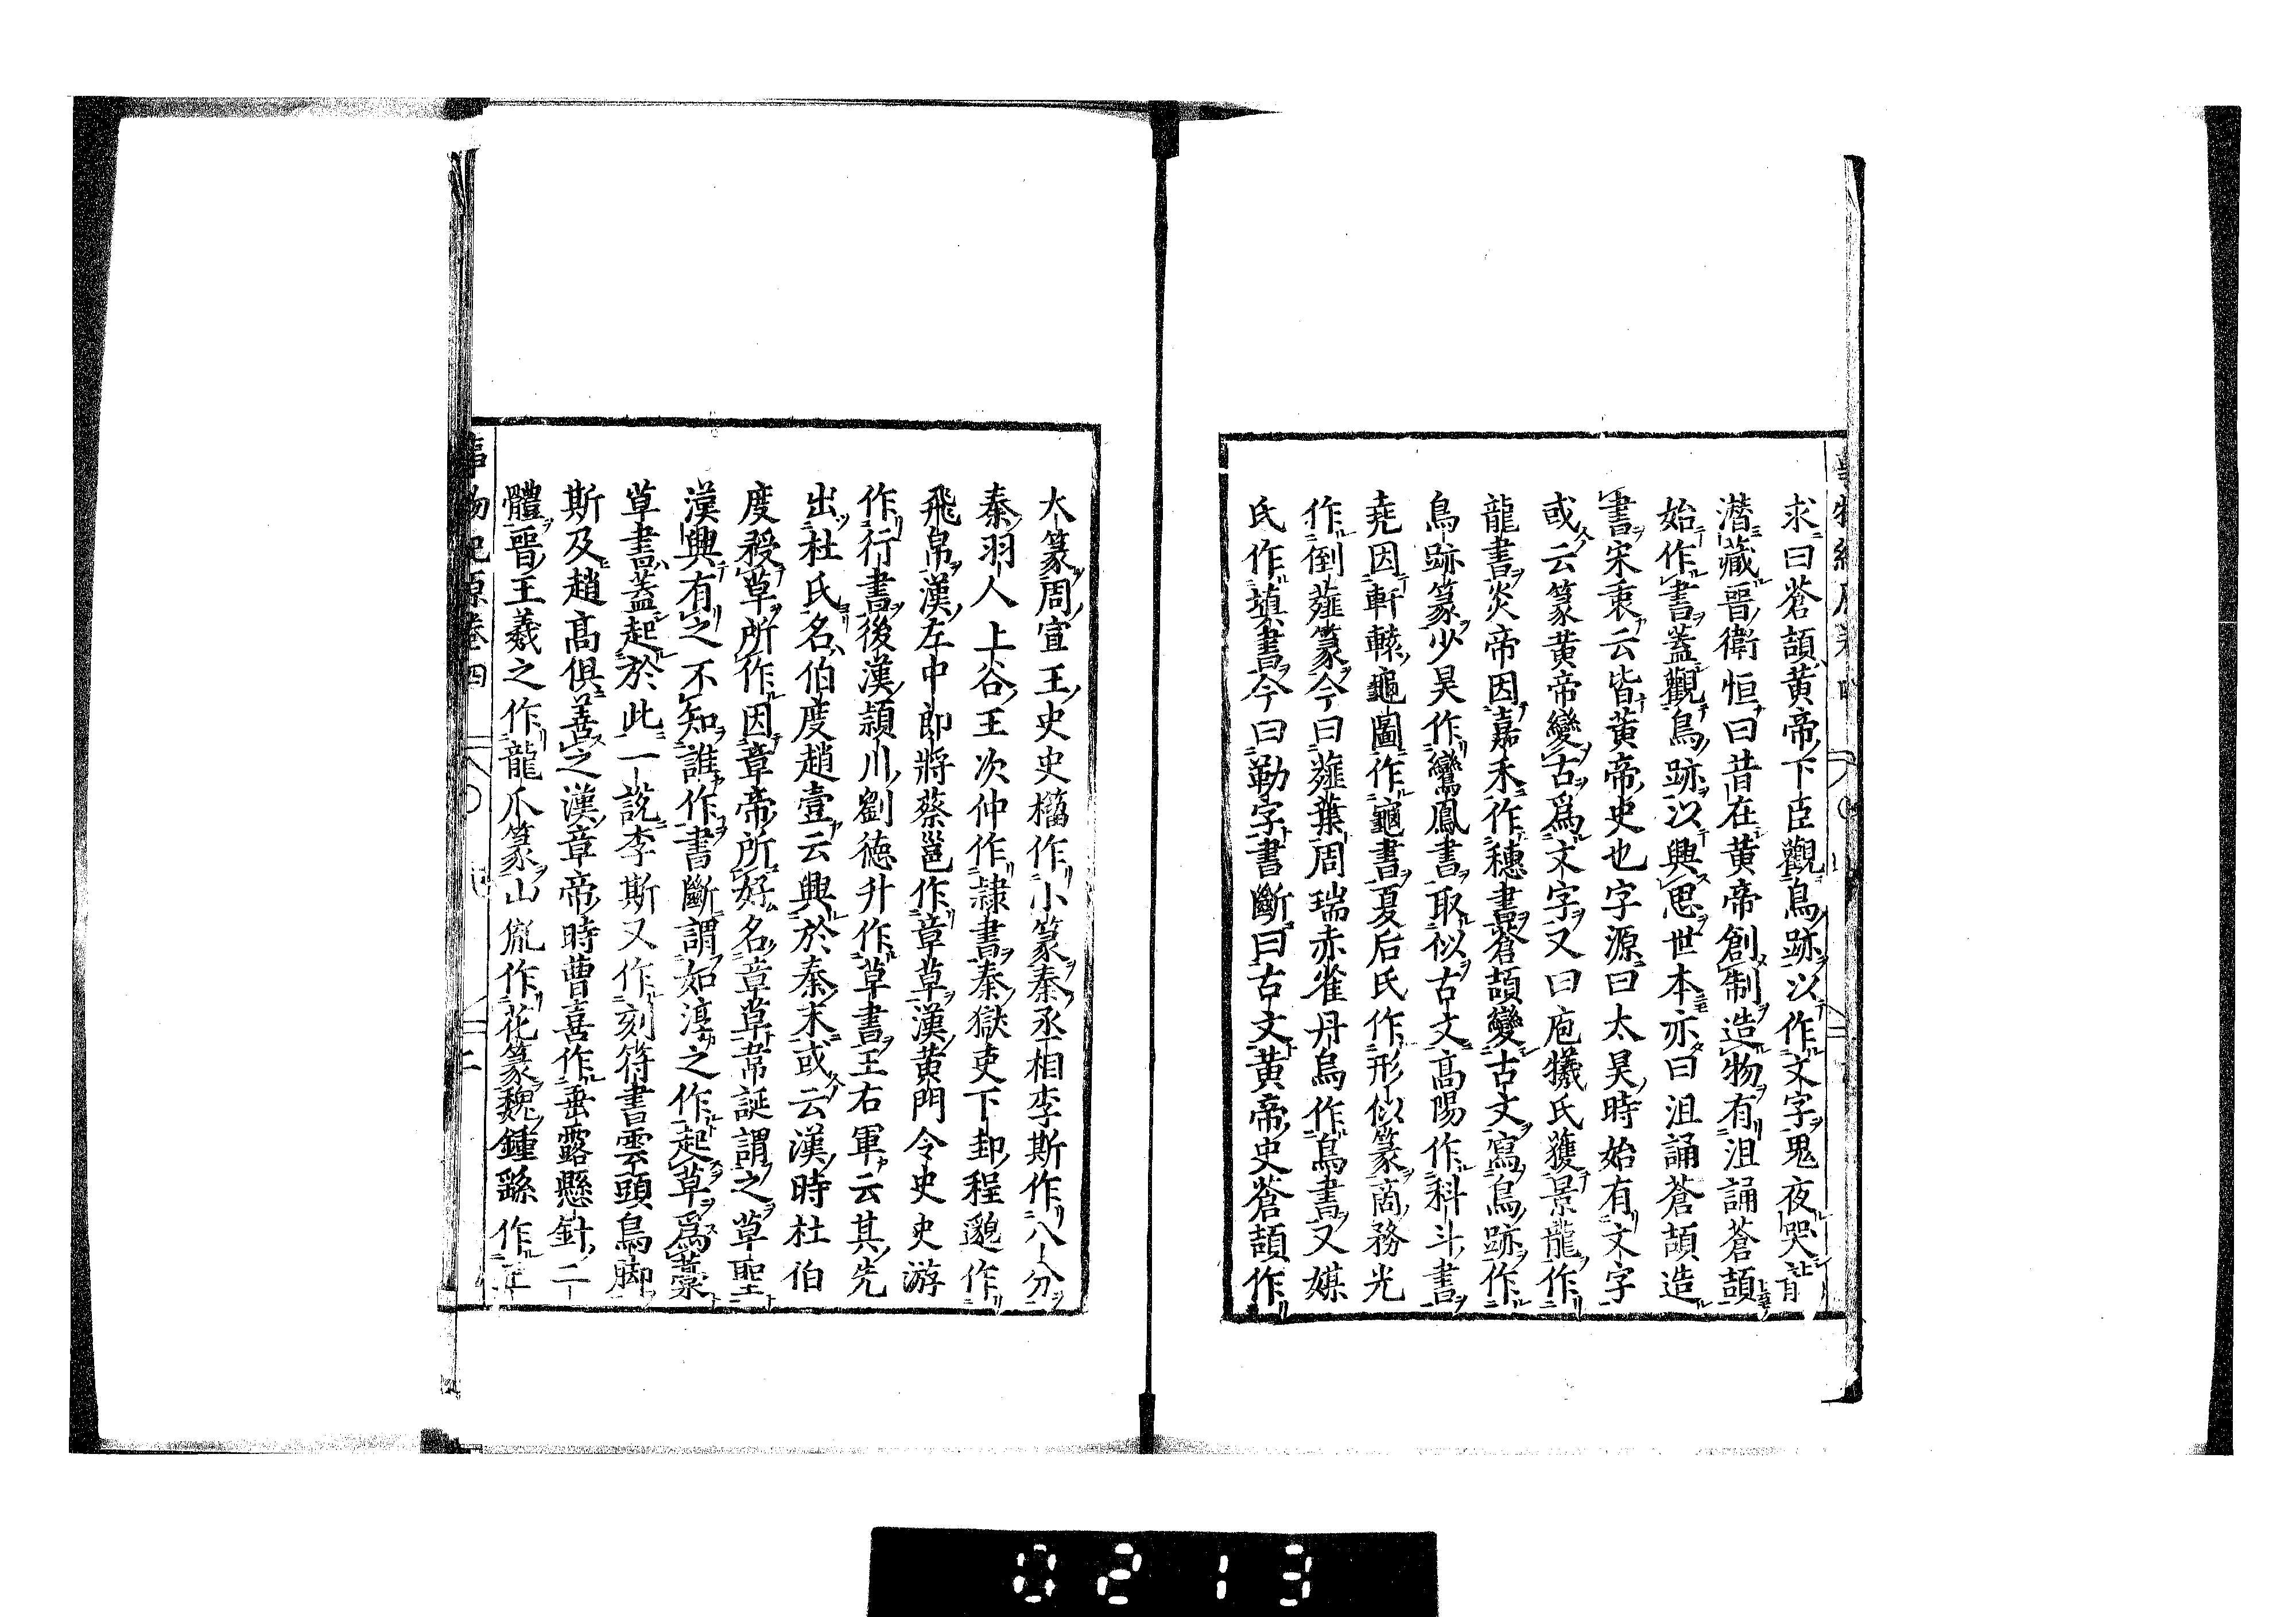 求曰蒼頡黄帝下臣觀鳥跡以作文字鬼夜哭
潜藏晋衛恒曰昔在黄帝創制造物有沮誦蒼頡
始作書蓋觀鳥跡以興思世本亦曰沮誦蒼頡造
書宋衷云皆黄帝史也字源曰太昊時始有文字
或云篆黄帝變古爲文字又曰庖犧氏獲景龍作
龍書炎帝因嘉禾作穗書蒼頡變古文寫鳥跡作
鳥跡篆少昊作鸞鳳書取似古文高陽作科斗書
堯因軒轅龜圖作龜書夏后氏作形似篆商務光
作倒薤篆今曰薤葉周瑞赤雀丹烏作鳥書又媒
氏作塡書今曰勒字書斷曰古文黄帝史蒼頡作
大篆周宣王史史籒作小篆秦丞相李斯作八分
秦羽人上谷王次仲作隷書秦獄吏下邽程邈作
飛帛漢左中郎將蔡邕作章草漢黄門令史史游
作行書後漢頴川劉徳升作草書王右軍云其先
出杜氏名伯度趙壹云興於秦末或云漢時杜伯
度授草所作因章帝所好名章草韋誕謂之草聖
漢興有之不知誰作書斷謂如淳之作起草爲藁
草書蓋起於此一説李斯又作刻符書雲頭鳥脚
斯及趙高俱善之漢章帝時曹喜作垂露懸針二
體晋王羲之作龍爪篆山胤作花篆魏鍾繇作
事物紀原卷四
二
0213